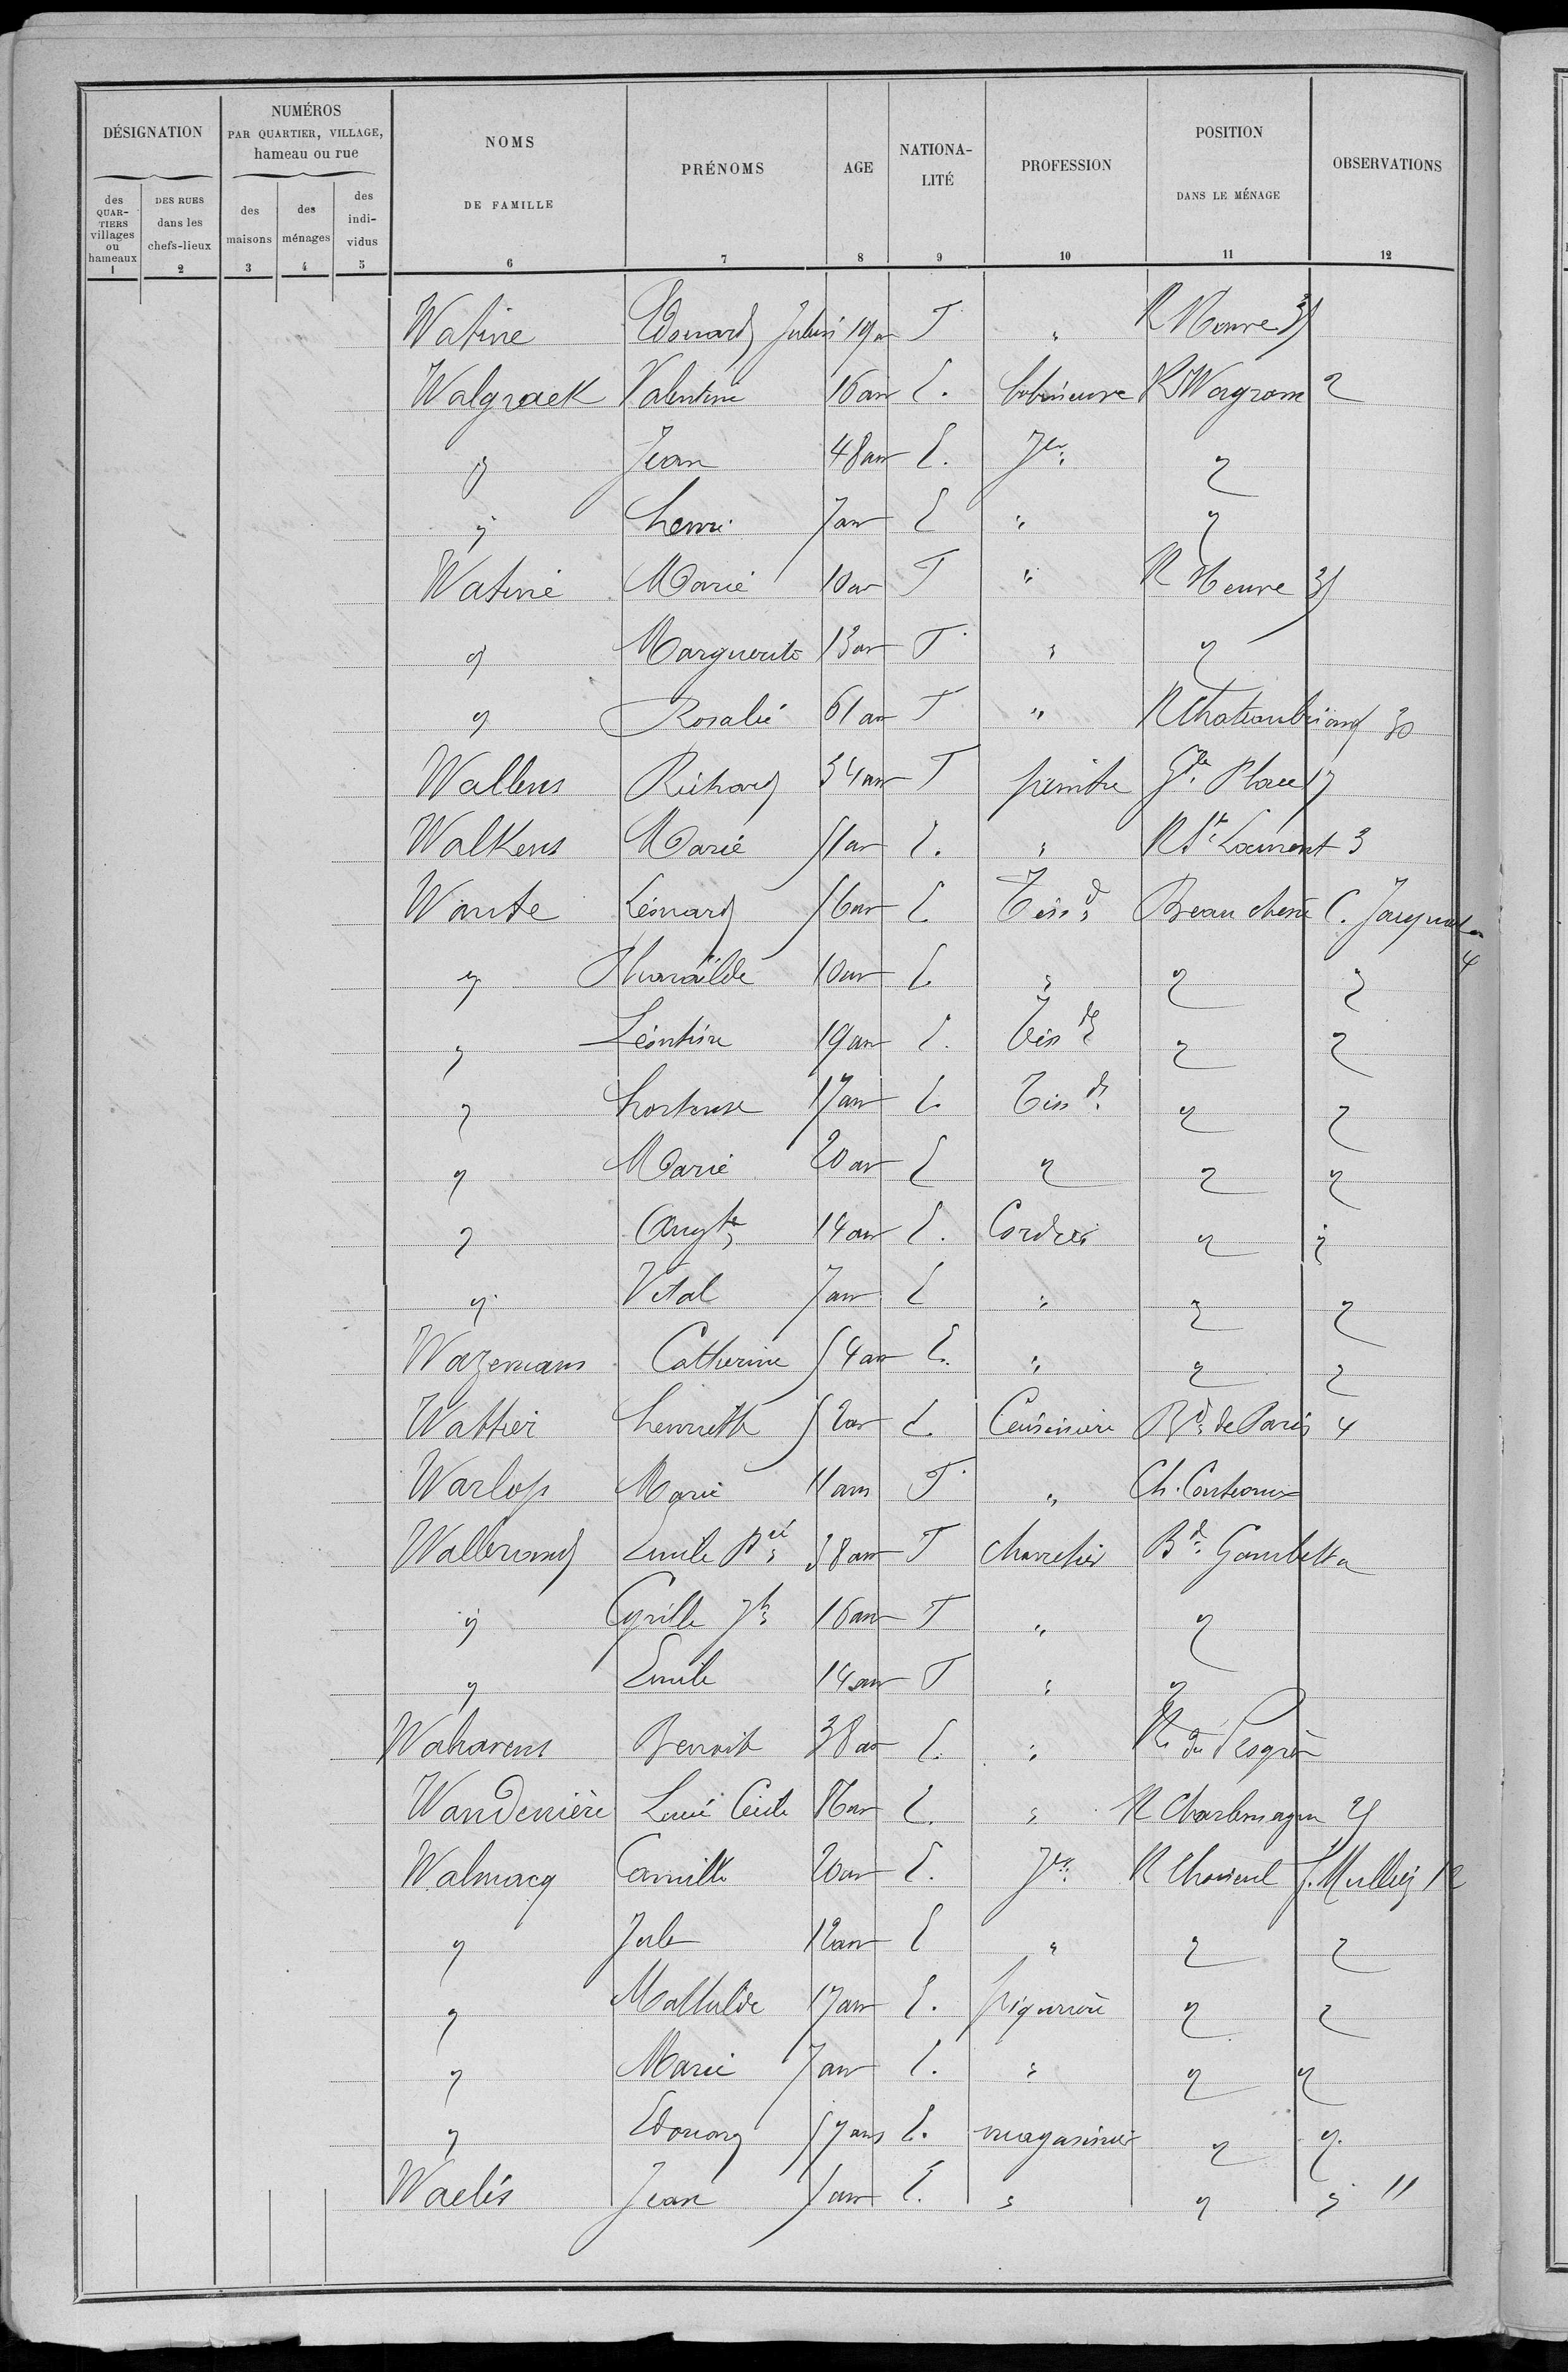 DÉSIGNATION
NUMÉROS
PAR QUARTIER, VILLAGE,
hameau ou rue
NOMS
DE FAMILLE
PRÉNOMS
AGE
NATIONA-
LITÉ
PROFESSION
POSITION
DANS LE MÉNAGE
OBSERVATIONS
des
QUAR-
TIERS
villages
ou
hameaux
DES RUES
dans les
chefs-lieux
des
maisons
des
ménages
des
indi-
vidus
1 2 3 4 5 6 7 8 9 10 11 12
Watine Edouard Julien 19 an F " R Neuve
Walgraek Valentine 16 an E. bobineuse R Wagram 2
" Jean 48 an E. Jer " 
" henri 7 an E " "
Watine Marie 10 an F " R Neuve
" Marguerite 13 an F " "
" Rosalie 61 an F " R Chateaubriand 30
Wallens Richard 34 an F peintre Gde Place 17
Walkens Marie 51 an E. " R St Laurent 3
Wante Léonard 56 an E Tissd Beau chêne C. Jacquard 4
" Pharaïlde 10 an E. " " "
" Léontine 19 an E. Tissde " "
" hortense 17 an E. Tissd " "
" Marie 20 an E " " "
" Augte 14 an E. Cordier " "
" Vital 7 an E " " "
Wazemans Catherine 54 an E. " " "
Wattier henriette 52 an E. Cuisinière Bd de Paris 4
Warlop Marie 11 ans F " Ch. Couteaux
Wallerand Emile 38 an F charretier Bd Gambetta
" Cyrille Jh 16 an F " "
" Emile 14 an F " "
Waharens Benoit 38 an E. " R. du Progrès
Wandenière Louis Cécile an E. " R Charlemagne 25
Walmacq Camille 20 an E. Jer R Choiseul f. Mulliez 12
" Jules 12 an E " " "
" Mathilde 17 an E. piqurière " "
" Marie 7 an E. " " "
" Edouard 57 ans E. magasinier " "
Waelès Jean 5 an E. " " " 11